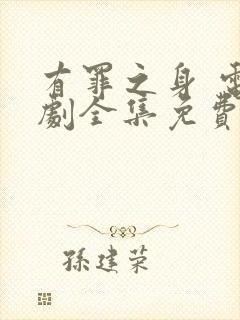 有罪之身 電
劇全集免費
孫建荣